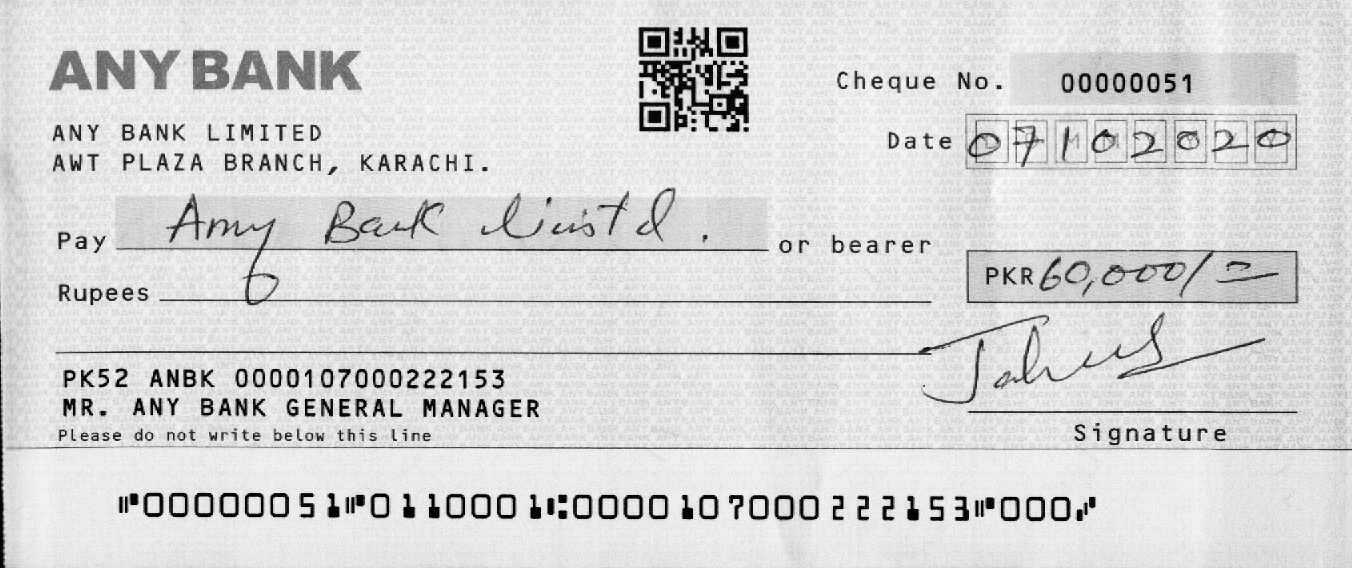 ANY BANK
ANY BANK LIMITED
AWT PLAZA BRANCH, KARACHI.
Cheque No. 00000051
Date 07102020
Pay Any Bank Limstd. or bearer
Rupees
PKR 60,000/=
PK52 ANBK 0000107000222153
MR. ANY BANK GENERAL MANAGER
Please do not write below this line
Signature
⑈00000051⑈0110001⑆0000107000222153⑈000⑇